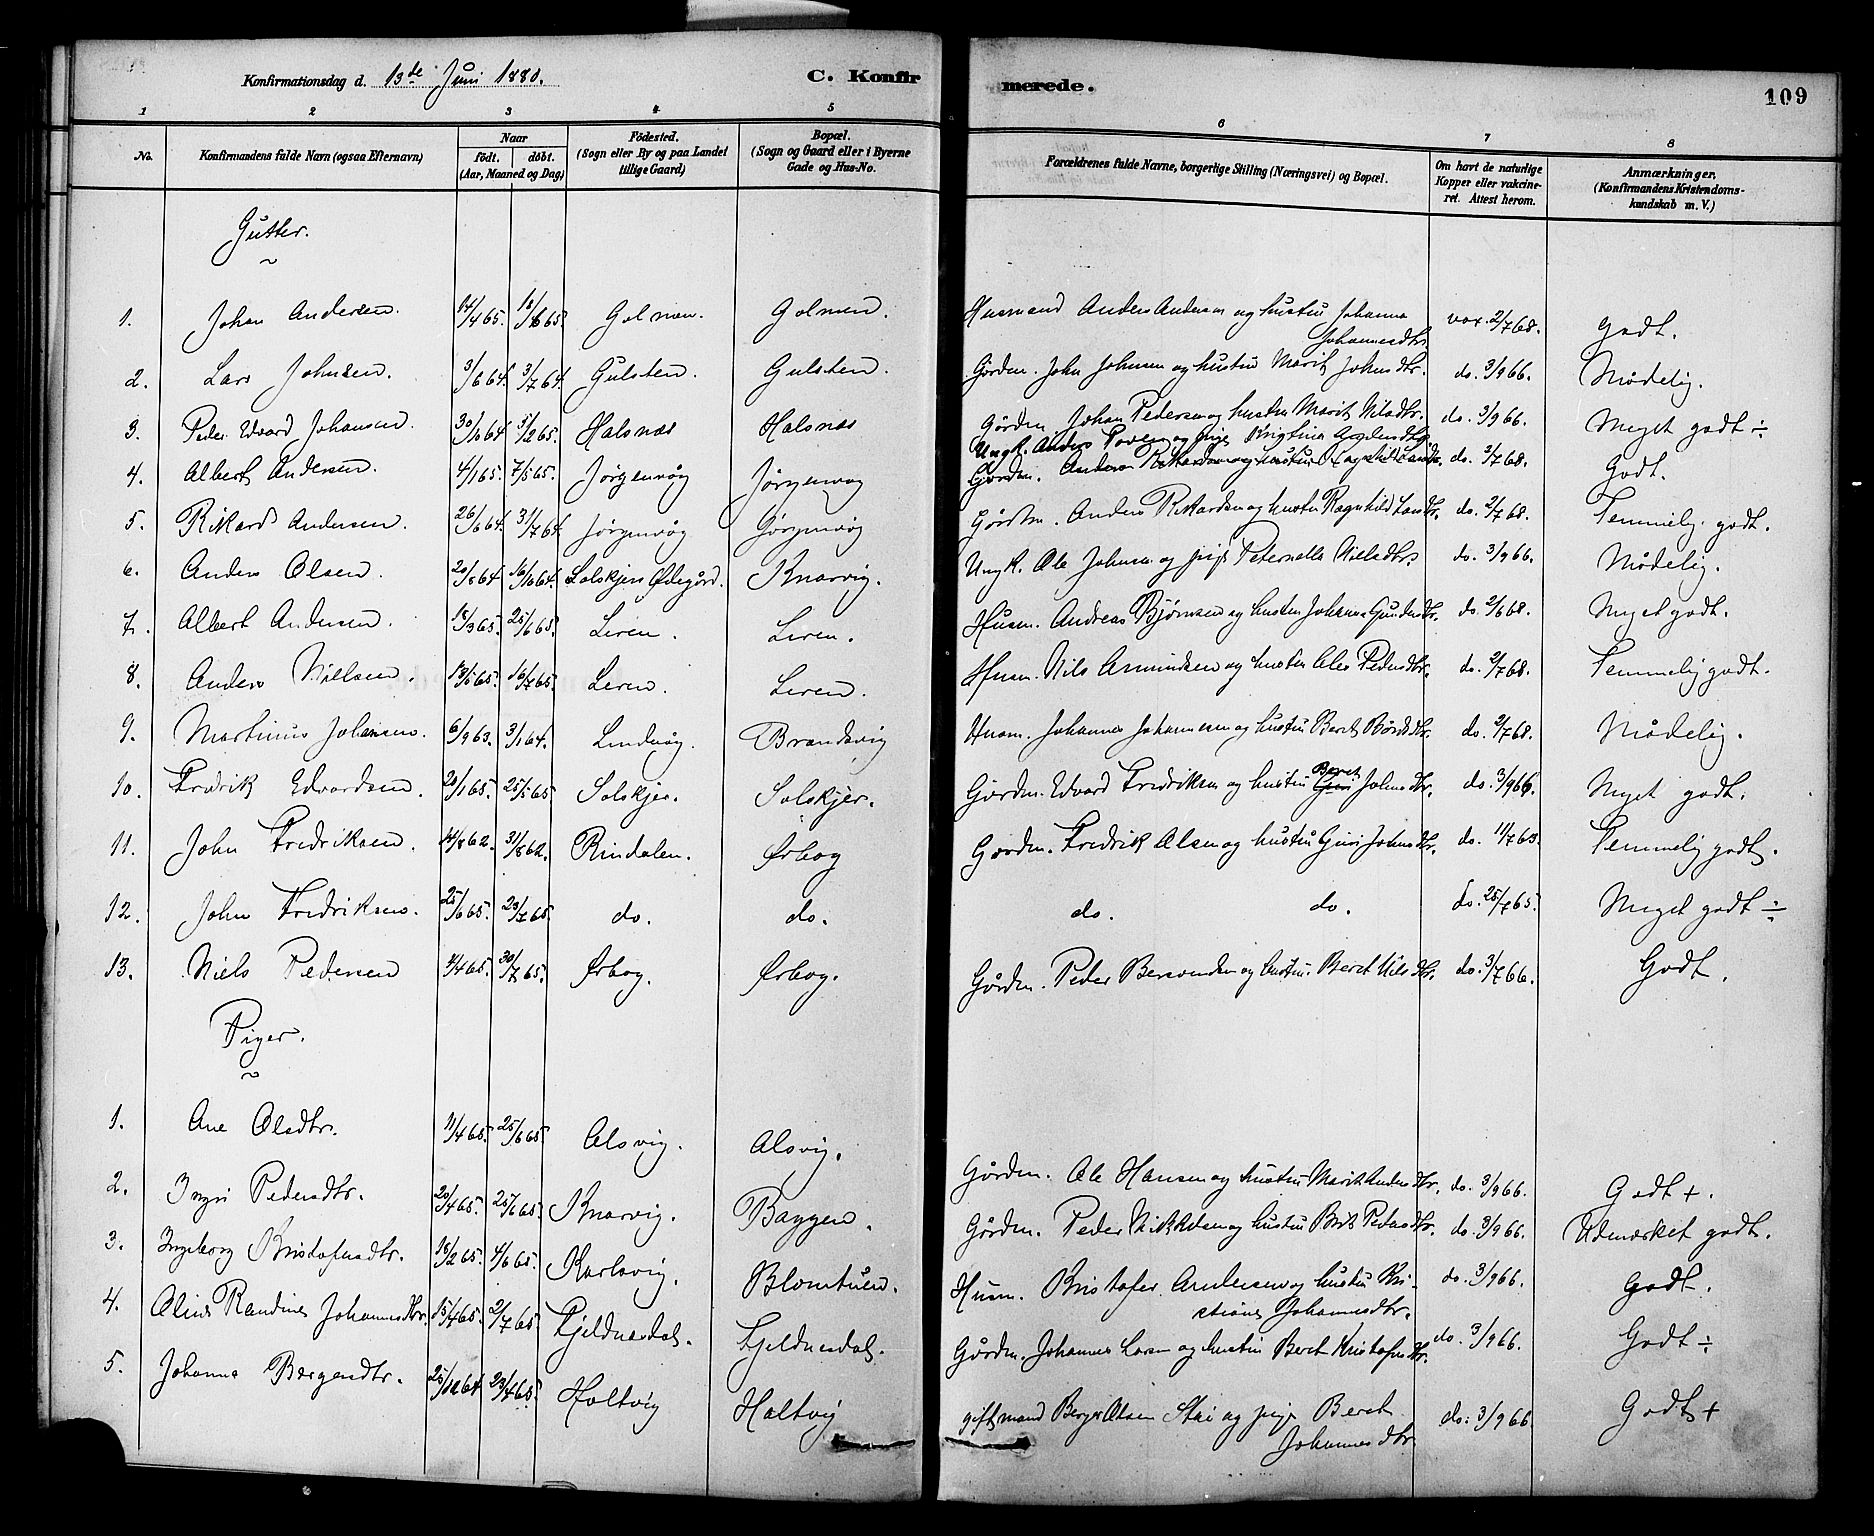 Konfirmationsdag d. 13de Juni 1880.
C. Konfirmerede.
109
1 2 3 4 5 6 7 8
No.
Konfirmandens fulde Navn (ogsaa Efternavn)
Naar
født. døbt.
(Aar, Maaned og Dag)
Födested.
(Sogn eller By og paa Landet
tillige Gaard)
Bopæl.
(Sogn og Gaard eller i Byerne
Gade og Hus-No.
Forældrenes fulde Navne, borgerlige Stilling (Næringsvei) og Bopæl.
Om havt de naturlige
Kopper eller vakcine-
ret. Attest herom.
Anmærkninger.
(Konfirmandens Kristendoms-
kundskab m. V.)
Gutter.
1. Johan Andersen. 14/4 65. 18/6 65. Golmen. Golmen. Husmand Anders Andersen og hustru Johanna Johannesdtr. vax. 2/7 68. Godt.
2. Lars Johnsen. 3/6 64. 3/7 64. Gulsten. Gulsten. Gårdm. John Johnsen og hustru Marit Johnsdtr. do. 3/9 66. Mådelig.
3. Peder Edvard Johansen. 30/10 64 5/2 65. Halsnæs Halsnæs Gårdm. Johan Pedersen og hustru Marit Nilsdtr. do. 3/9 66. Meget godt ÷
4. Albert Andersen. 4/1 65. 7/5 65. Jørgenvåg Jørgenvåg Ungk. Anders og pige
Gårdm. Anders Rikardsen og hustru do. 2/7 68. Godt.
5. Rikard Andersen. 26/6 64. 31/7 64. Jørgenvåg Jørgenvåg Gårdm. Anders Rikardsen og hustru Ragnhild Larsdtr. do. 2/7 68. Temmelig godt.
6. Anders Olsen. 20/8 64. 16/10 64. Solskjers Ødegård. Knarvig. Ungk. Ole Johnsen og pige Peternella Nielsdtr. do. 3/9 66. Mådelig.
7. Albert Andersen. 18/3 65. 25/6 65. Leren. Leren. Husm. Andreas Bjørnsen og hustru Johanna Gundersdtr. do. 2/6 68. Meget godt.
8. Anders Nielsen. 13/5 65. 16/7 65. Leren. Leren. Husm. Nils Amundsen og hustru Pedersdtr. do. 2/7 68. Temmelig godt.
9. Martinus Johansen. 6/9 63. 3/1 64. Lindvåg. Brandsvig Husm. Johannes Johannesen og hustru Beret Bårdsdtr. do. 2/7 68. Mådelig.
10. Fredrik Edvardsen. 21/1 65. 25/5 65. Solskjer. Solskjer. Gårdm. Edvard Fredriksen og hustru Beret Johnsdtr. do. 3/9 66. Meget godt.
11. John Fredriksen. 14/8 62. 31/8 62. Rindalen. Ørbog Gårdm. Fredrik Olsen og hustru Guri Johnsdtr. do. 11/7 63. Temmelig godt.
12. John Fredriksen. 25/6 65. 23/7 65. do. do. do. do. do. 25/7 65. Meget godt ÷
13. Niels Pedersen 4/4 65. 30/7 65. Ørbog. Ørbog. Gårdm. Peder Bersvendsen og hustru. Beret Nilsdtr. do. 3/7 66. Godt.
Piger.
1. Ane Olsdtr. 11/4 65. 25/6 65. Alsvig. Alsvig. Gårdm. Ole Hansen og hustru Marit Andersdtr. do. 3/9 66. Godt +.
2. Ingri Pedersdtr. 20/4 65. 25/6 65. Knarvig. Baggen. Gårdm. Peder Mikkelsen og hustru Brit Pedersdtr. do. 3/9 66. Udmærket godt.
3. Ingeborg Kristofersdtr. 18/2 65. 4/6 65. Karlsvig. Blomtuen. Husm. Kristofer Andersen og hustru Kri-
stiane Johannesdtr. do. 3/9 66. Godt.
4. Oline Randine Johannesdtr. 15/4 65. 2/7 65. Fjeldnesdal. Fjeldnesdal. Gårdm. Johannes Larsen og hustru Beret Kristofersdtr. do. 3/9 66. Godt ÷
5. Johanna Bergersdtr. 25/12 64 23/4 65. Holtvig Holtvig gift mand Berger Olsen og pige Beret
Johannesdtr do. 3/9 66 Godt +